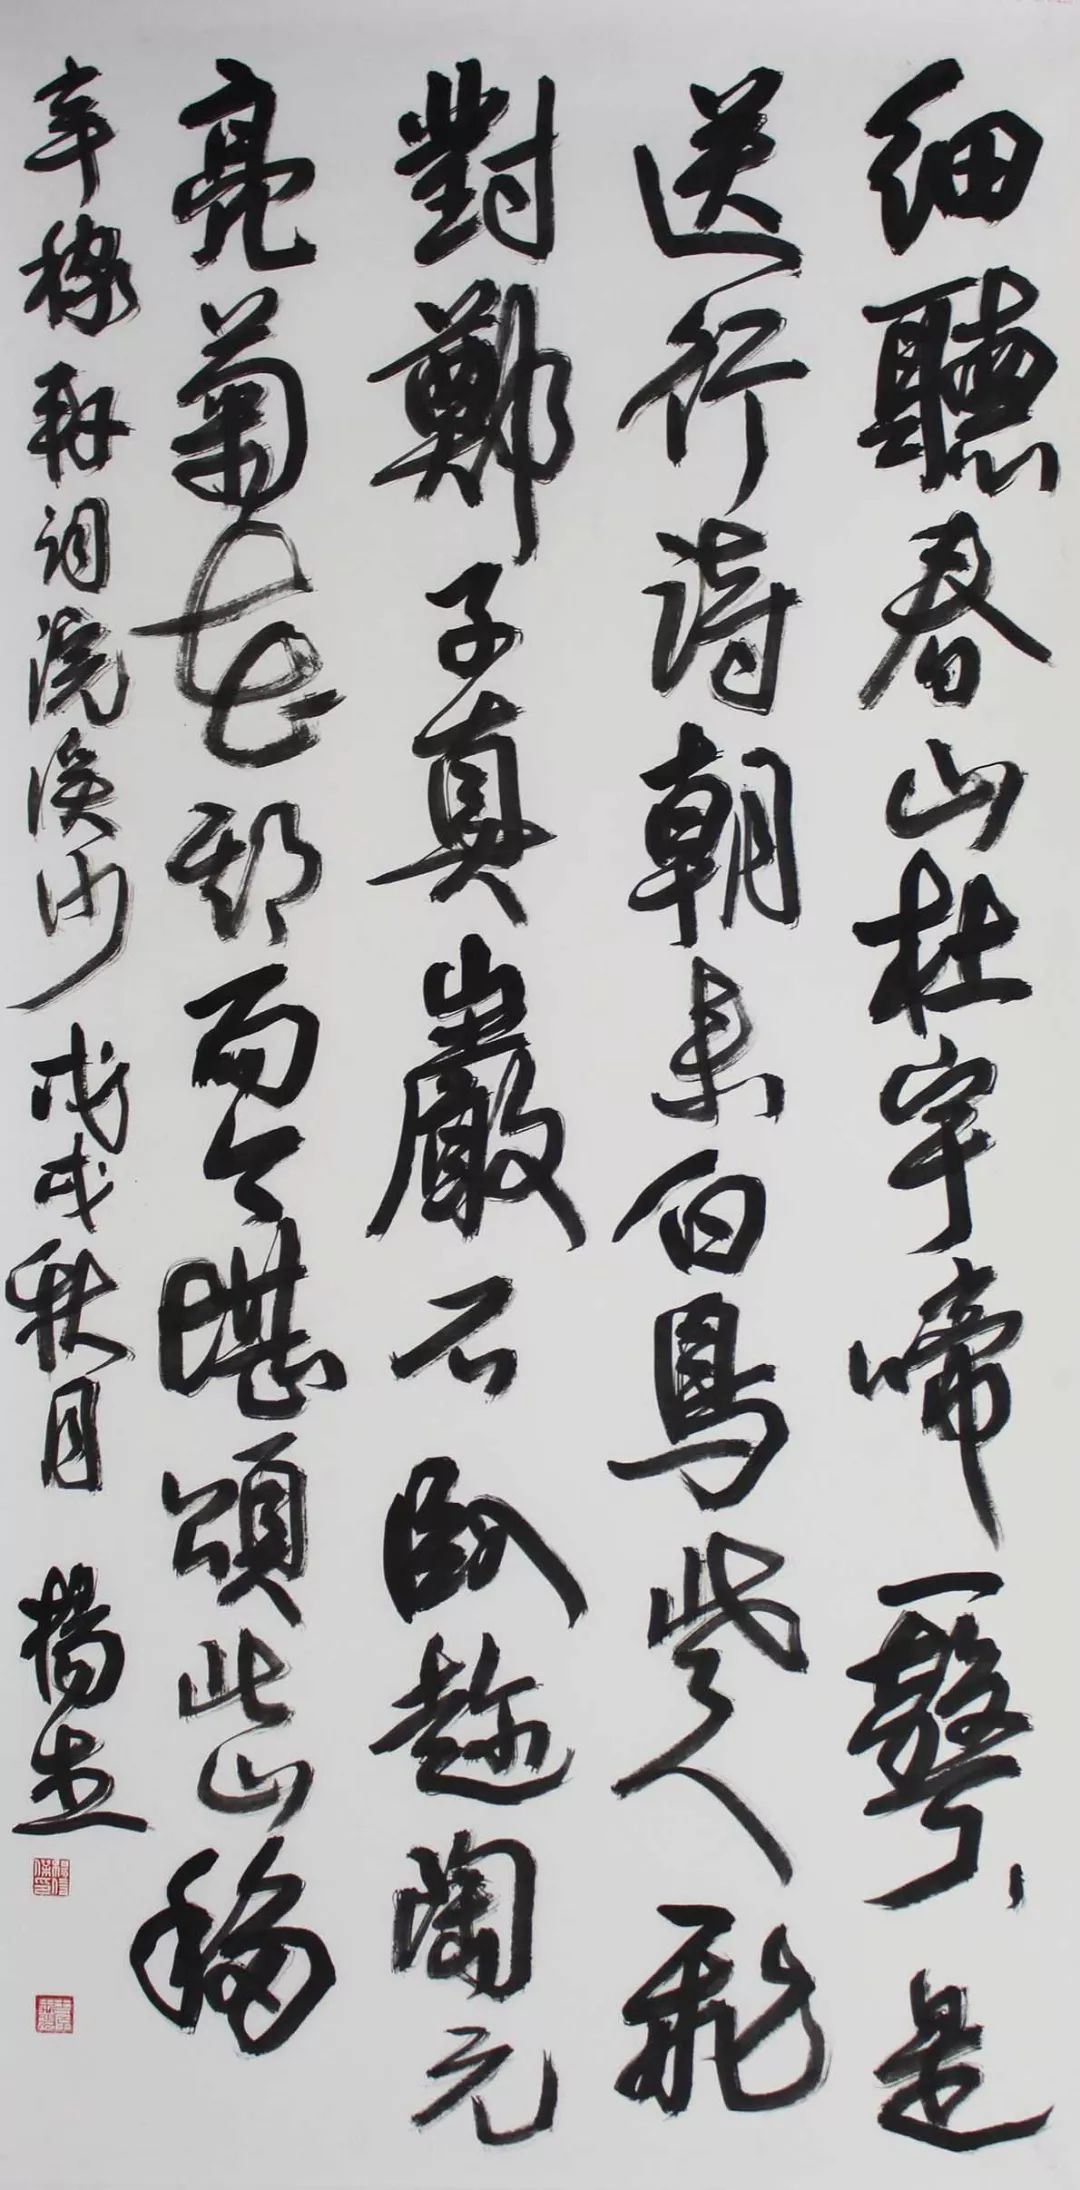 細聽春山杜宇啼一聲、是
送行詩朝來白鳥背人飛
對鄭子真巖石臥趂陶元
亮菊花期而今堪頌北山移
辛稼軒詞浣溪沙 戊戌秋月 楊